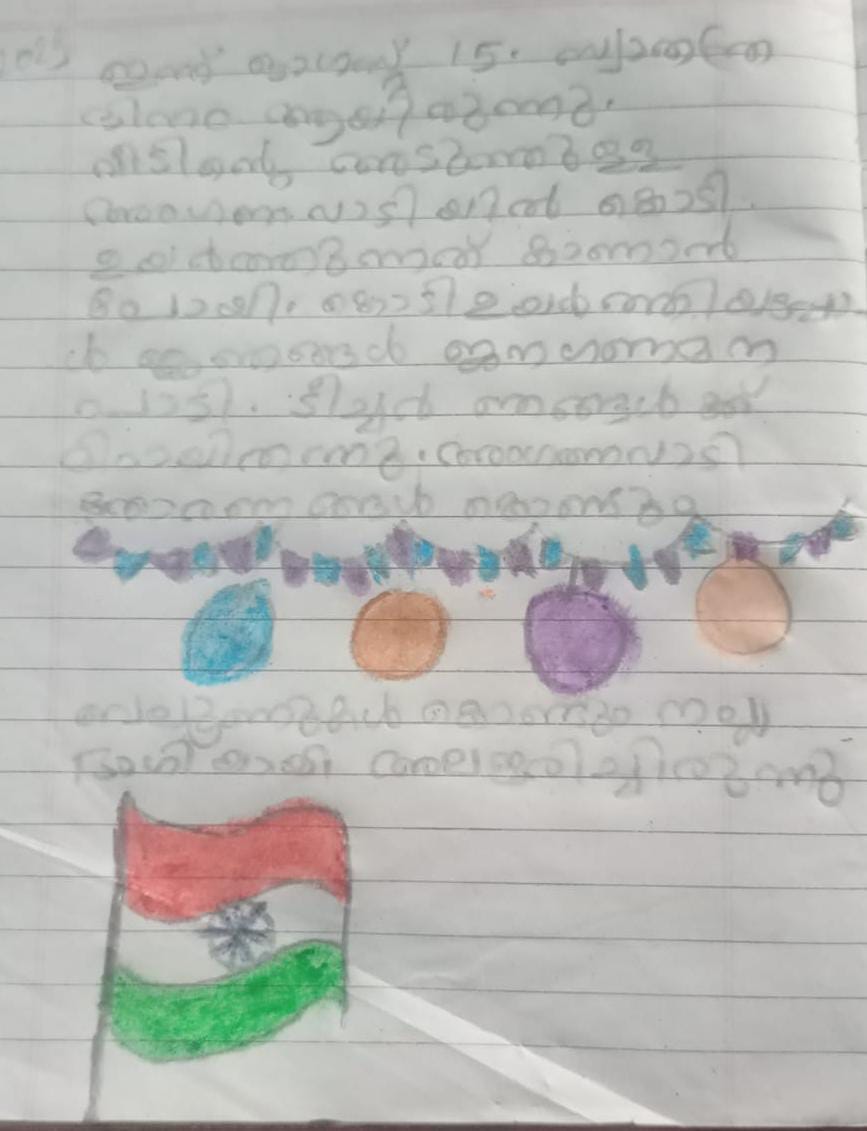 2025
ഇന്ന് ആഗസ്റ്റ് 15. സ്വാതന്ത്ര്യ
ദിനം ആയിരുന്നു.
വീടിന്റെ അടുത്തുള്ള
അംഗണവാടിയിൽ കൊടി
ഉയർത്തുന്നത് കാണാൻ
പോയി. കൊടി ഉയർത്തിയപ്പോ
ൾ ഞങ്ങൾ ജനഗണമന
പാടി. ടീച്ചർ ഞങ്ങൾക്ക്
തന്നു. അംഗണവാടി
തോരണങ്ങൾ കൊണ്ടും
ബലൂണുകൾ കൊണ്ടും നല്ല
ഭംഗിയായി അലങ്കരിച്ചിരുന്നു